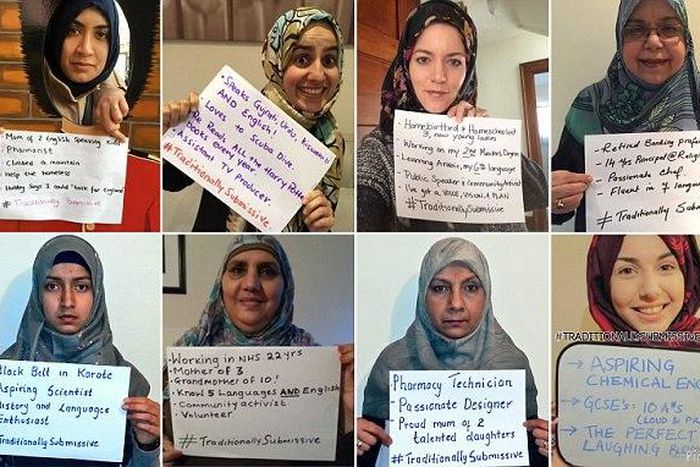 Mom of 2 English speaking kids
Pharmacist
Climbed a mountain
Help the homeless
Hubby says I could 'talk for England'
#Traditionally Submissive
Speaks Gujrati, Urdu,
AND English!
Loves to Scuba Dive.
Re Reads ALL the Harry Potter
books every year.
Assistant TV Producer.
#Traditionally Submissive.
Homebirthed & Homeschooled
3, now young ladies
Working on my 2nd Masters Degree
Learning Arabic, my 6th language
Public Speaker & community Activist
I've got a VOICE, VISION & PLAN
#Traditionally Submissive
- Retired Banking
- 14 yrs
- Passionate chef.
- Fluent in 7
#Traditionally Submis
Black Belt in Karate
Aspiring Scientist
History and Languages
Enthusiast
#Traditionally Submissive
• Working in NHS 22 yrs
• Mother of 3
• Grandmother of 10!
• Know 5 Languages AND English
• Community activist
• Volunteer
#Traditionally Submissive
- Pharmacy Technician
- Passionate Designer
- Proud mum of 2
talented daughters
#Traditionally Submissive
#TRADITIONALLYSUBMISSIVE
→ ASPIRING
CHEMICAL
→ GCSE's: 10 A*s
→ THE PERFECT
LAUGHING